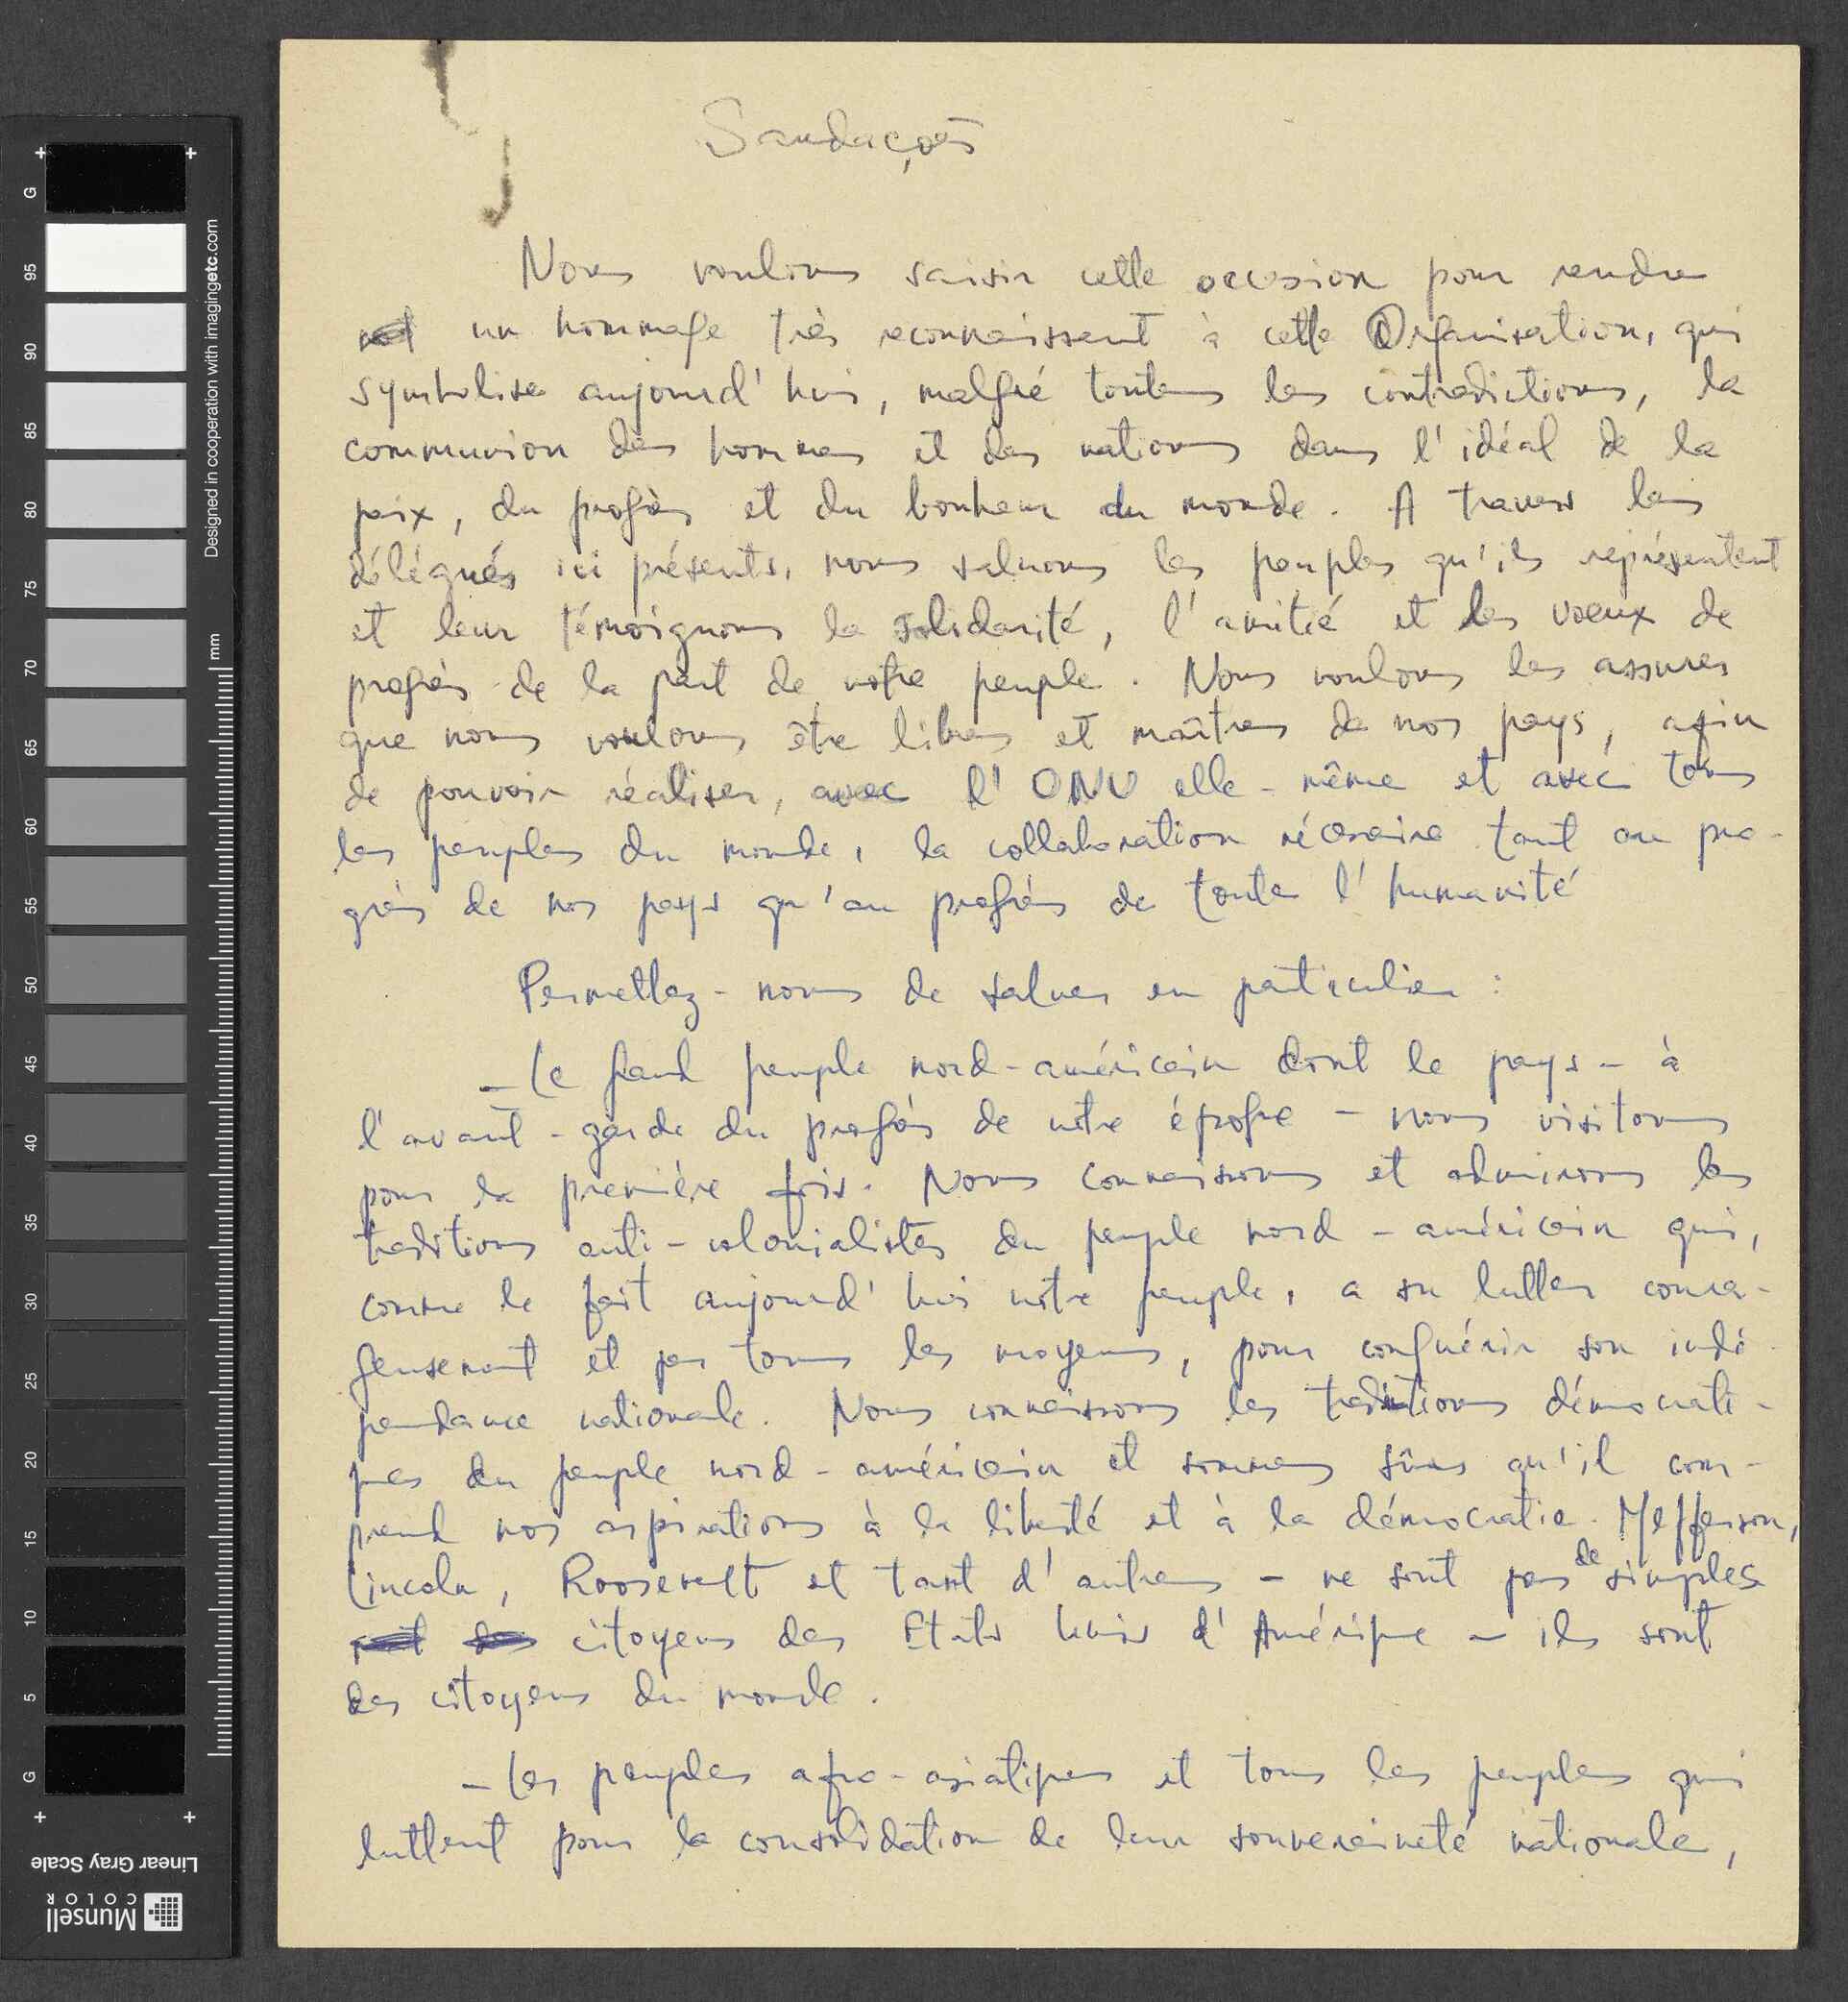 Saudações
Nous voulons saisir cette occasion pour rendre
un hommage très reconnaissant à cette Organisation, qui
symbolise aujourd'hui, malgré toutes les contradictions, la
communion des hommes et des nations dans l'idéal de la
paix, du progrès et du bonheur du monde. A travers les
délégués ici présents, nous saluons les peuples qu'ils représentent
et leur témoignons la solidarité, l'amitié et les voeux de
progrès de la part de notre peuple. Nous voulons les assurer
que nous voulons être libres et maîtres de nos pays, afin
de pouvoir réaliser, avec l'ONU elle-même et avec tous
les peuples du monde, la collaboration nécessaire tant au pro-
grès de nos pays qu'au progrès de toute l'humanité
Permettez-nous de saluer en particulier :
- Le grand peuple nord-américain dont le pays - à
l'avant-garde du progrès de notre époque - nous visitons
pour la première fois. Nous connaissons et admirons les
traditions anti-colonialistes du peuple nord-américain qui,
comme le fait aujourd'hui notre peuple, a su lutter coura-
geusement et par tous les moyens, pour conquérir son indé-
pendance nationale. Nous connaissons les traditions démocrati-
ques du peuple nord-américain et sommes sûrs qu'il com-
prend nos aspirations à la liberté et à la démocratie. Jefferson,
Lincoln, Roosevelt et tant d'autres - ne sont pas de simples
citoyens des Etats Unis d'Amérique - ils sont
des citoyens du monde.
- Les peuples afro-asiatiques et tous les peuples qui
luttent pour la consolidation de leur souveraineté nationale,
Designed in cooperation with imagingetc.com
mm
G
95
90
85
80
75
70
65
60
55
50
45
40
35
30
25
20
15
10
5
G
Linear Gray Scale
Munsell
COLOR